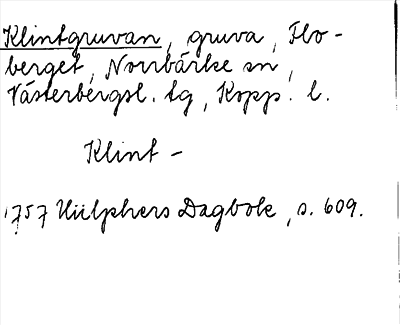 Klintgruvan, gruva, Flo-
berget, Norrbärke sn,
Västerbergsl. tg, Kopp. l.
Klint -
1757 Hülphers Dagbok, s. 609.